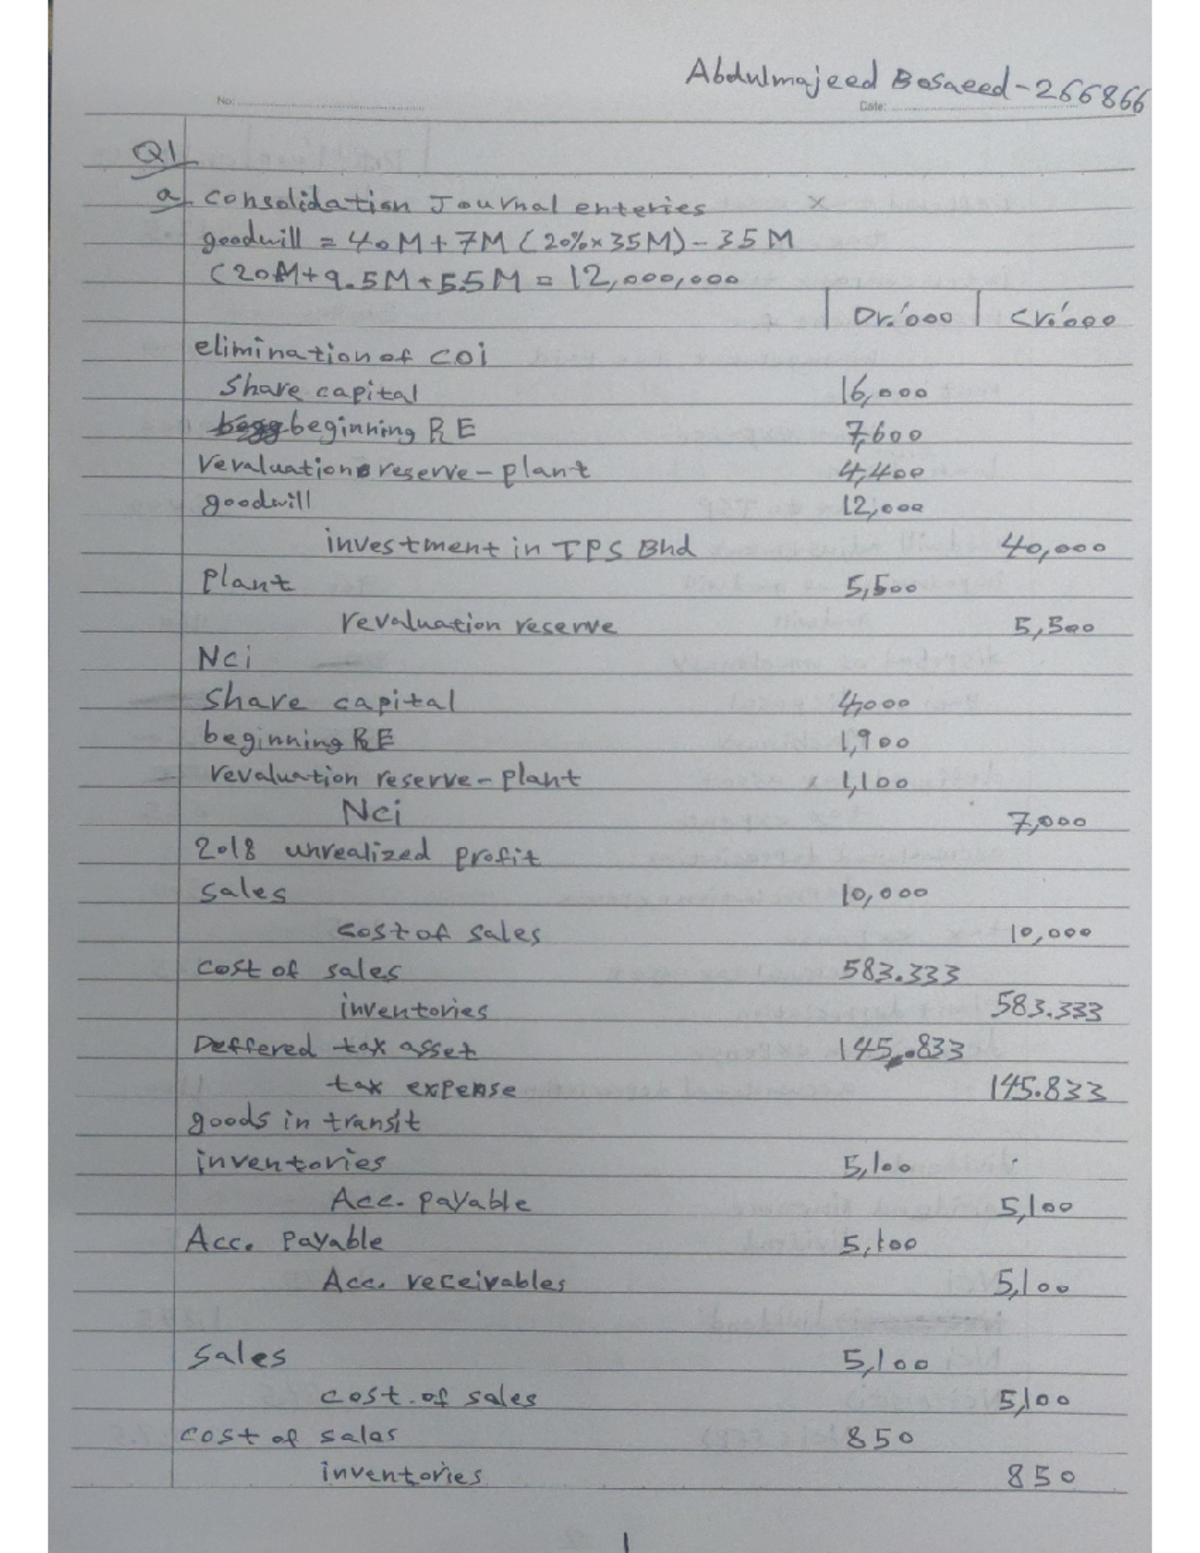 Abdulmajeed Bosaeed - 266866
No:
Date:
Q1
a) consolidation Journal enteries x
goodwill = 40M + 7M (20% x 35M) - 35M
(20M + 9.5M + 5.5M = 12,000,000
Dr.'000 | Cr.'000
elimination of COi
Share capital 16,000
beginning RE 7,600
revaluation reserve - plant 4,400
goodwill 12,000
investment in TPS Bhd 40,000
plant 5,500
revaluation reserve 5,500
Nci
Share capital 4,000
beginning RE 1,900
revaluation reserve - plant 1,100
Nci 7,000
2018 unrealized profit
sales 10,000
cost of sales 10,000
cost of sales 583.333
inventories 583.333
Deffered tax asset 145.833
tax expense 145.833
goods in transit
inventories 5,100
Acc. payable 5,100
Acc. payable 5,100
Acc. receivables 5,100
sales 5,100
cost of sales 5,100
cost of salas 850
inventories 850
1